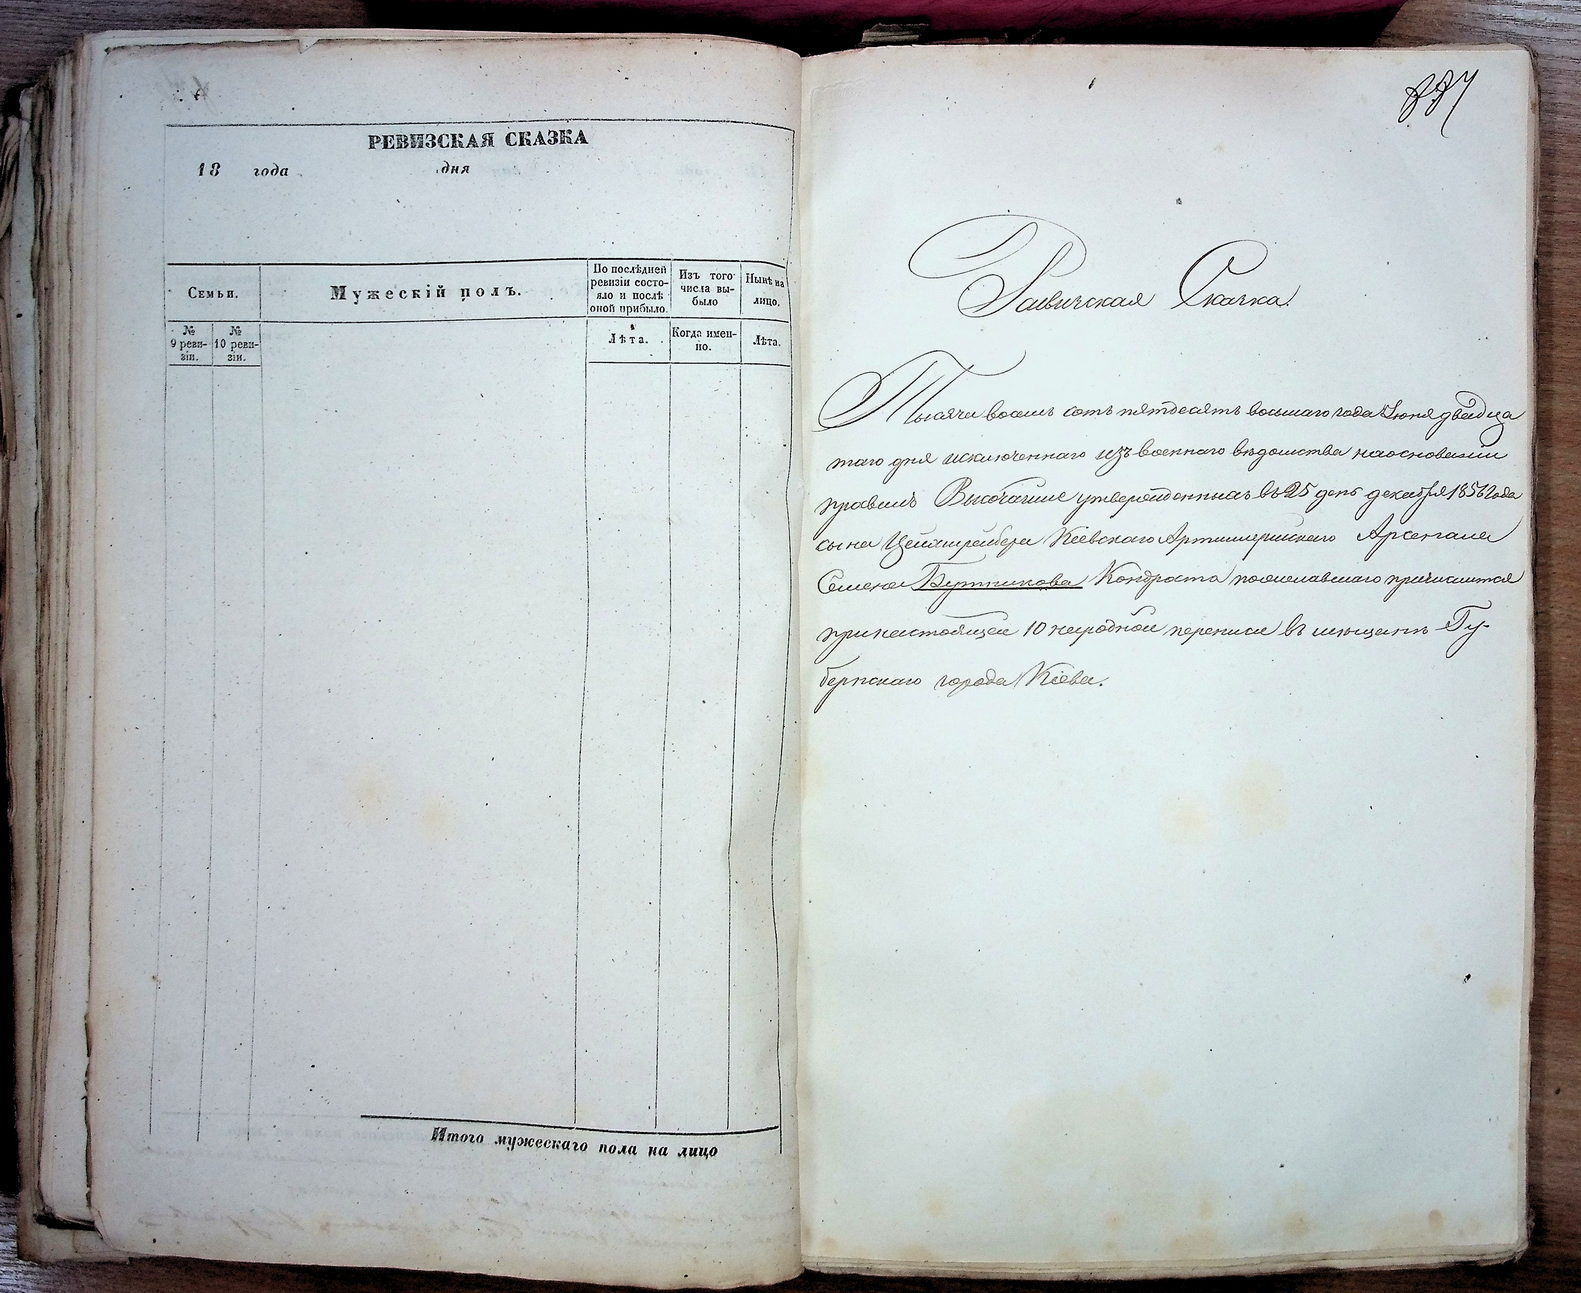 РЕВИЗСКАЯ СКАЗКА
18 года дня
Семьи.
Мужескій полъ.
По послѣдней ревизіи состояло и послѣ оной прибыло.
Изъ того числа выбыло
Нынѣ на лицо.
№ 9 ревизіи.
№ 10 ревизіи.
Лѣта.
Когда именно.
Лѣта.
Итого мужескаго пола на лицо
Скачка.
Тысяча восемь сотъ пятдесятъ восьмаго года Іюня двадца
таго дня исключеннаго изъ военнаго вѣдомства на основаніи
правилъ Высочайше утвержденныхъ въ 25 день декабря 1856 года
сына Кіевскаго Артиллерійскаго Арсенала
Семена Кондрата пожелавшаго причислится
при настоящей 10 народной переписи въ мѣщане Гу-
бернскаго города Кіева.